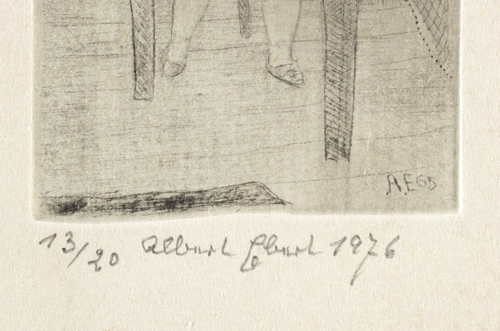 AE65
13/20 Albert Ebert 1976